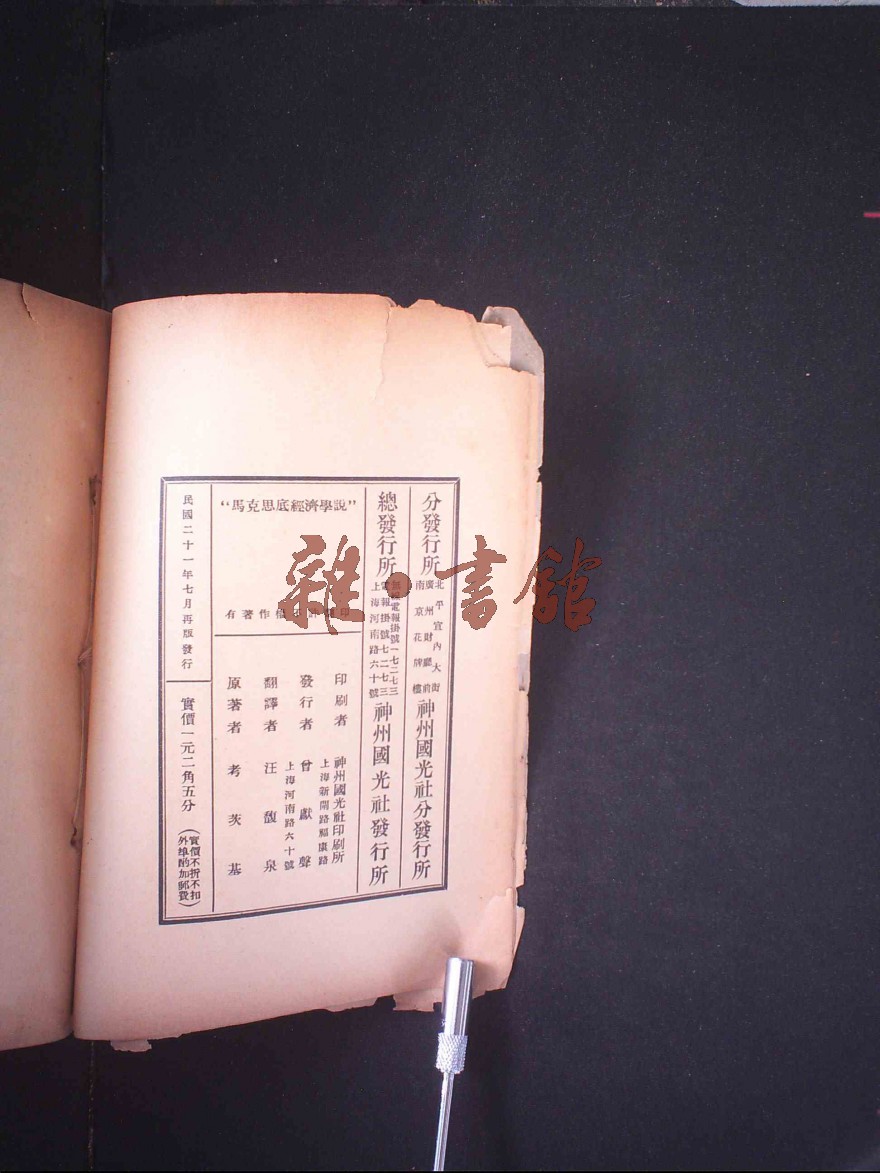 分發行所
北平宣內大街
廣州財廳前
南京花牌樓
神州國光社分發行所
總發行所
無線電報掛號一七二七三
電報掛號七二七三
上海河南路六十號
神州國光社發行所
“馬克思底經濟學說”
有著作權
印
印刷者
神州國光社印刷所
上海新閘路福康路
發行者
曾獻聲
上海河南路六十號
翻譯者
汪馥泉
原著者
考茨基
民國二十一年七月再版發行
實價一元二角五分
(實價不折不扣
外埠酌加郵費)
雜·書館